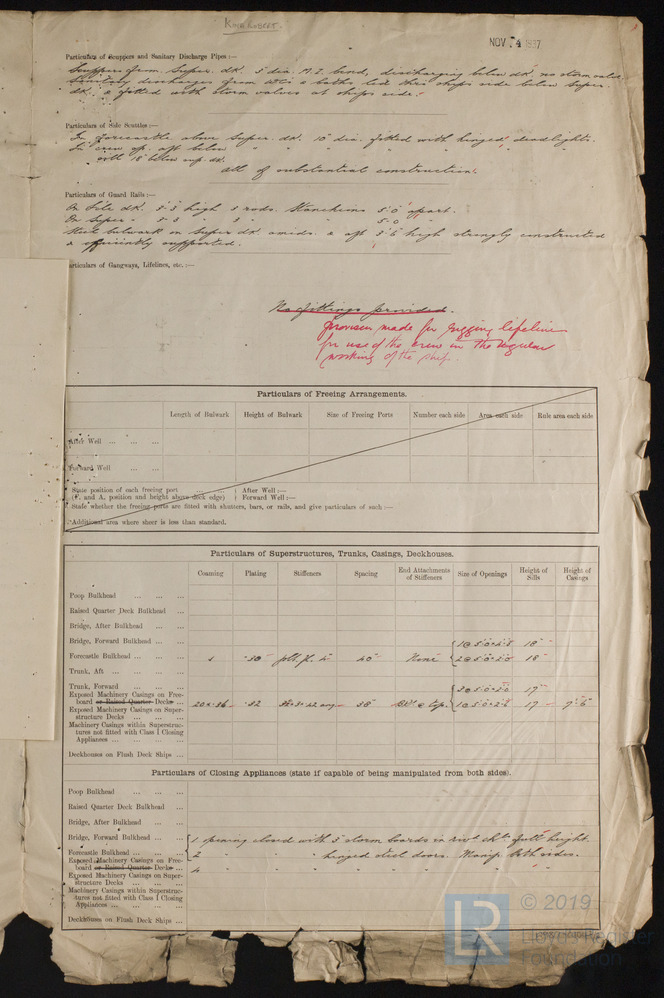 NOV 24 1937
Particulars of Scuppers and Sanitary Discharge Pipes :—
Scuppers from Super. dk. 5 dia. M.I. bend, discharging below dk. no storm valve.
Sanitary discharges from WCs & baths led thro ships side below Super.
dk. & fitted with storm valves at ships side.
Particulars of Side Scuttles :—
In forecastle above Super. dk. 10" dia. fitted with hinged deadlights.
In crew sp. aft below " " " " " "
both 18" below sup. dk.
all of substantial construction.
Particulars of Guard Rails :—
On Fcle dk. 3-3 high 3 rods. Stanchions 5-0 apart.
On Super " 3-3 " 3 " " 5-0 "
Steel bulwark on Super dk amids. & aft 3'6 high strongly constructed
& efficiently supported.
Particulars of Gangways, Lifelines, etc. :—
No fittings provided.
Provision made for rigging lifelines
for use of the crew in the regular
working of the ship.
Particulars of Freeing Arrangements.
Length of Bulwark Height of Bulwark Size of Freeing Ports Number each side Area each side Rule area each side
After Well ... ... ...
Forward Well ... ...
State position of each freeing port ... ... After Well :—
(F. and A. position and height above deck edge) Forward Well :—
State whether the freeing ports are fitted with shutters, bars, or rails, and give particulars of such :—
*Additional area where sheer is less than standard.
Particulars of Superstructures, Trunks, Casings, Deckhouses.
Coaming Plating Stiffeners Spacing End Attachments of Stiffeners Size of Openings Height of Sills Height of Casings
Poop Bulkhead ... ... ...
Raised Quarter Deck Bulkhead ...
Bridge, After Bulkhead ... ...
Bridge, Forward Bulkhead ... ...
Forecastle Bulkhead ... ... ... .30 40 None 18 18
Trunk, Aft ... ... ... ...
Trunk, Forward ... ... ...
Exposed Machinery Casings on Free-
board or Raised Quarter Decks ... .32 38 17 17 7-6
Exposed Machinery Casings on Super-
structure Decks ... ... ...
Machinery Casings within Superstruc-
tures not fitted with Class I Closing
Appliances ... ... ... ...
Deckhouses on Flush Deck Ships ...
Particulars of Closing Appliances (state if capable of being manipulated from both sides).
Poop Bulkhead ... ... ...
Raised Quarter Deck Bulkhead ...
Bridge, After Bulkhead ... ...
Bridge, Forward Bulkhead ... ... 1 opening closed with 3" storm boards in rivd. chls. full height.
Forecastle Bulkhead ... ... ... 2 " " hinged steel doors. Manip. both sides.
Exposed Machinery Casings on Free-
board or Raised Quarter Decks ... 4 " " " " " " "
Exposed Machinery Casings on Super-
structure Decks ... ... ...
Machinery Casings within Superstruc-
tures not fitted with Class I Closing
Appliances ... ... ... ...
Deckhouses on Flush Deck Ships ...
LR
© 2019
Lloyd's Register
Foundation